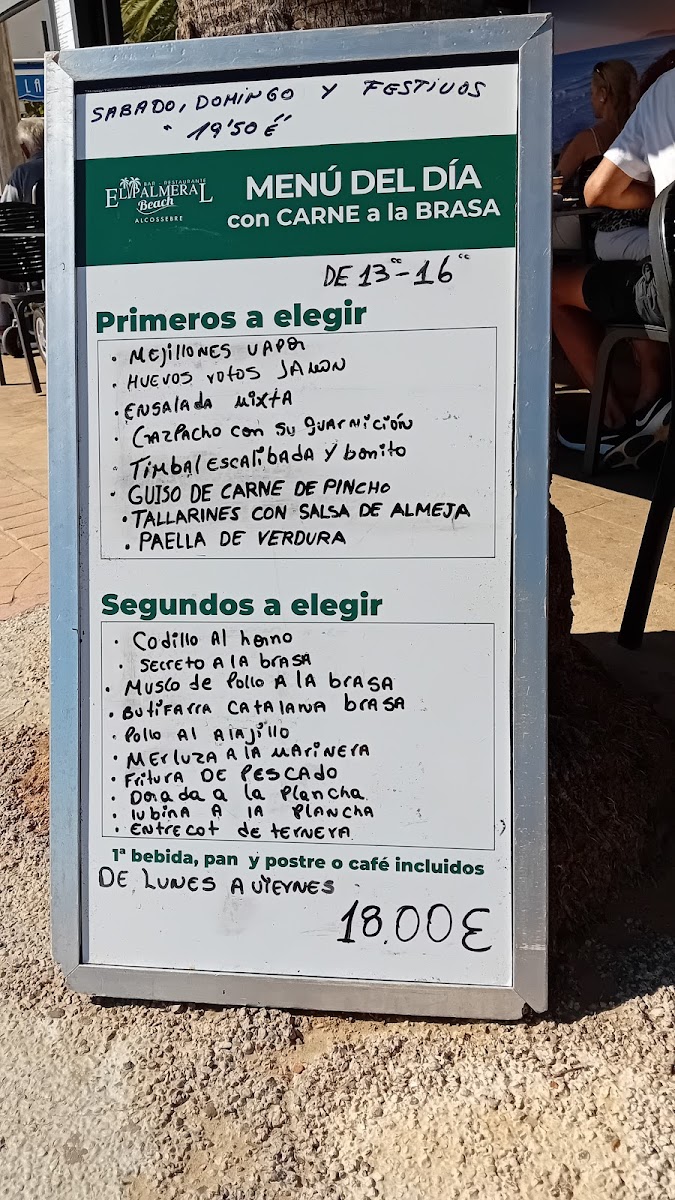 LA
SABADO, DOMINGO Y FESTIVOS
"19'50 €"
BAR - RESTAURANTE
EL PALMERAL
Beach
ALCOSSEBRE
MENÚ DEL DÍA
con CARNE a la BRASA
DE 13"-16"
Primeros a elegir
· MEJILLONES VAPOR
· HUEVOS ROTOS JAMON
· ENSALADA MIXTA
· GAZPACHO CON SU GUARNICIÓN
· TIMBAL ESCALIBADA Y bonito
· GUISO DE CARNE DE PINCHO
· TALLARINES CON SALSA DE ALMEJA
· PAELLA DE VERDURA
Segundos a elegir
· Codillo Al horno
· SECRETO A LA brASA
· MUSLO de Pollo A LA brASA
· BUTIFARRA CATALANA brASA
· Pollo Al AlAjillo
· MERLUZA A LA MARINERA
· FRITURA DE PESCADO
· Dorada a la Plancha
· lubina A lA PLANCHA
· ENTRECOT de TERNERA
1ª bebida, pan y postre o café incluidos
DE LUNES A VIERNES
18,00€